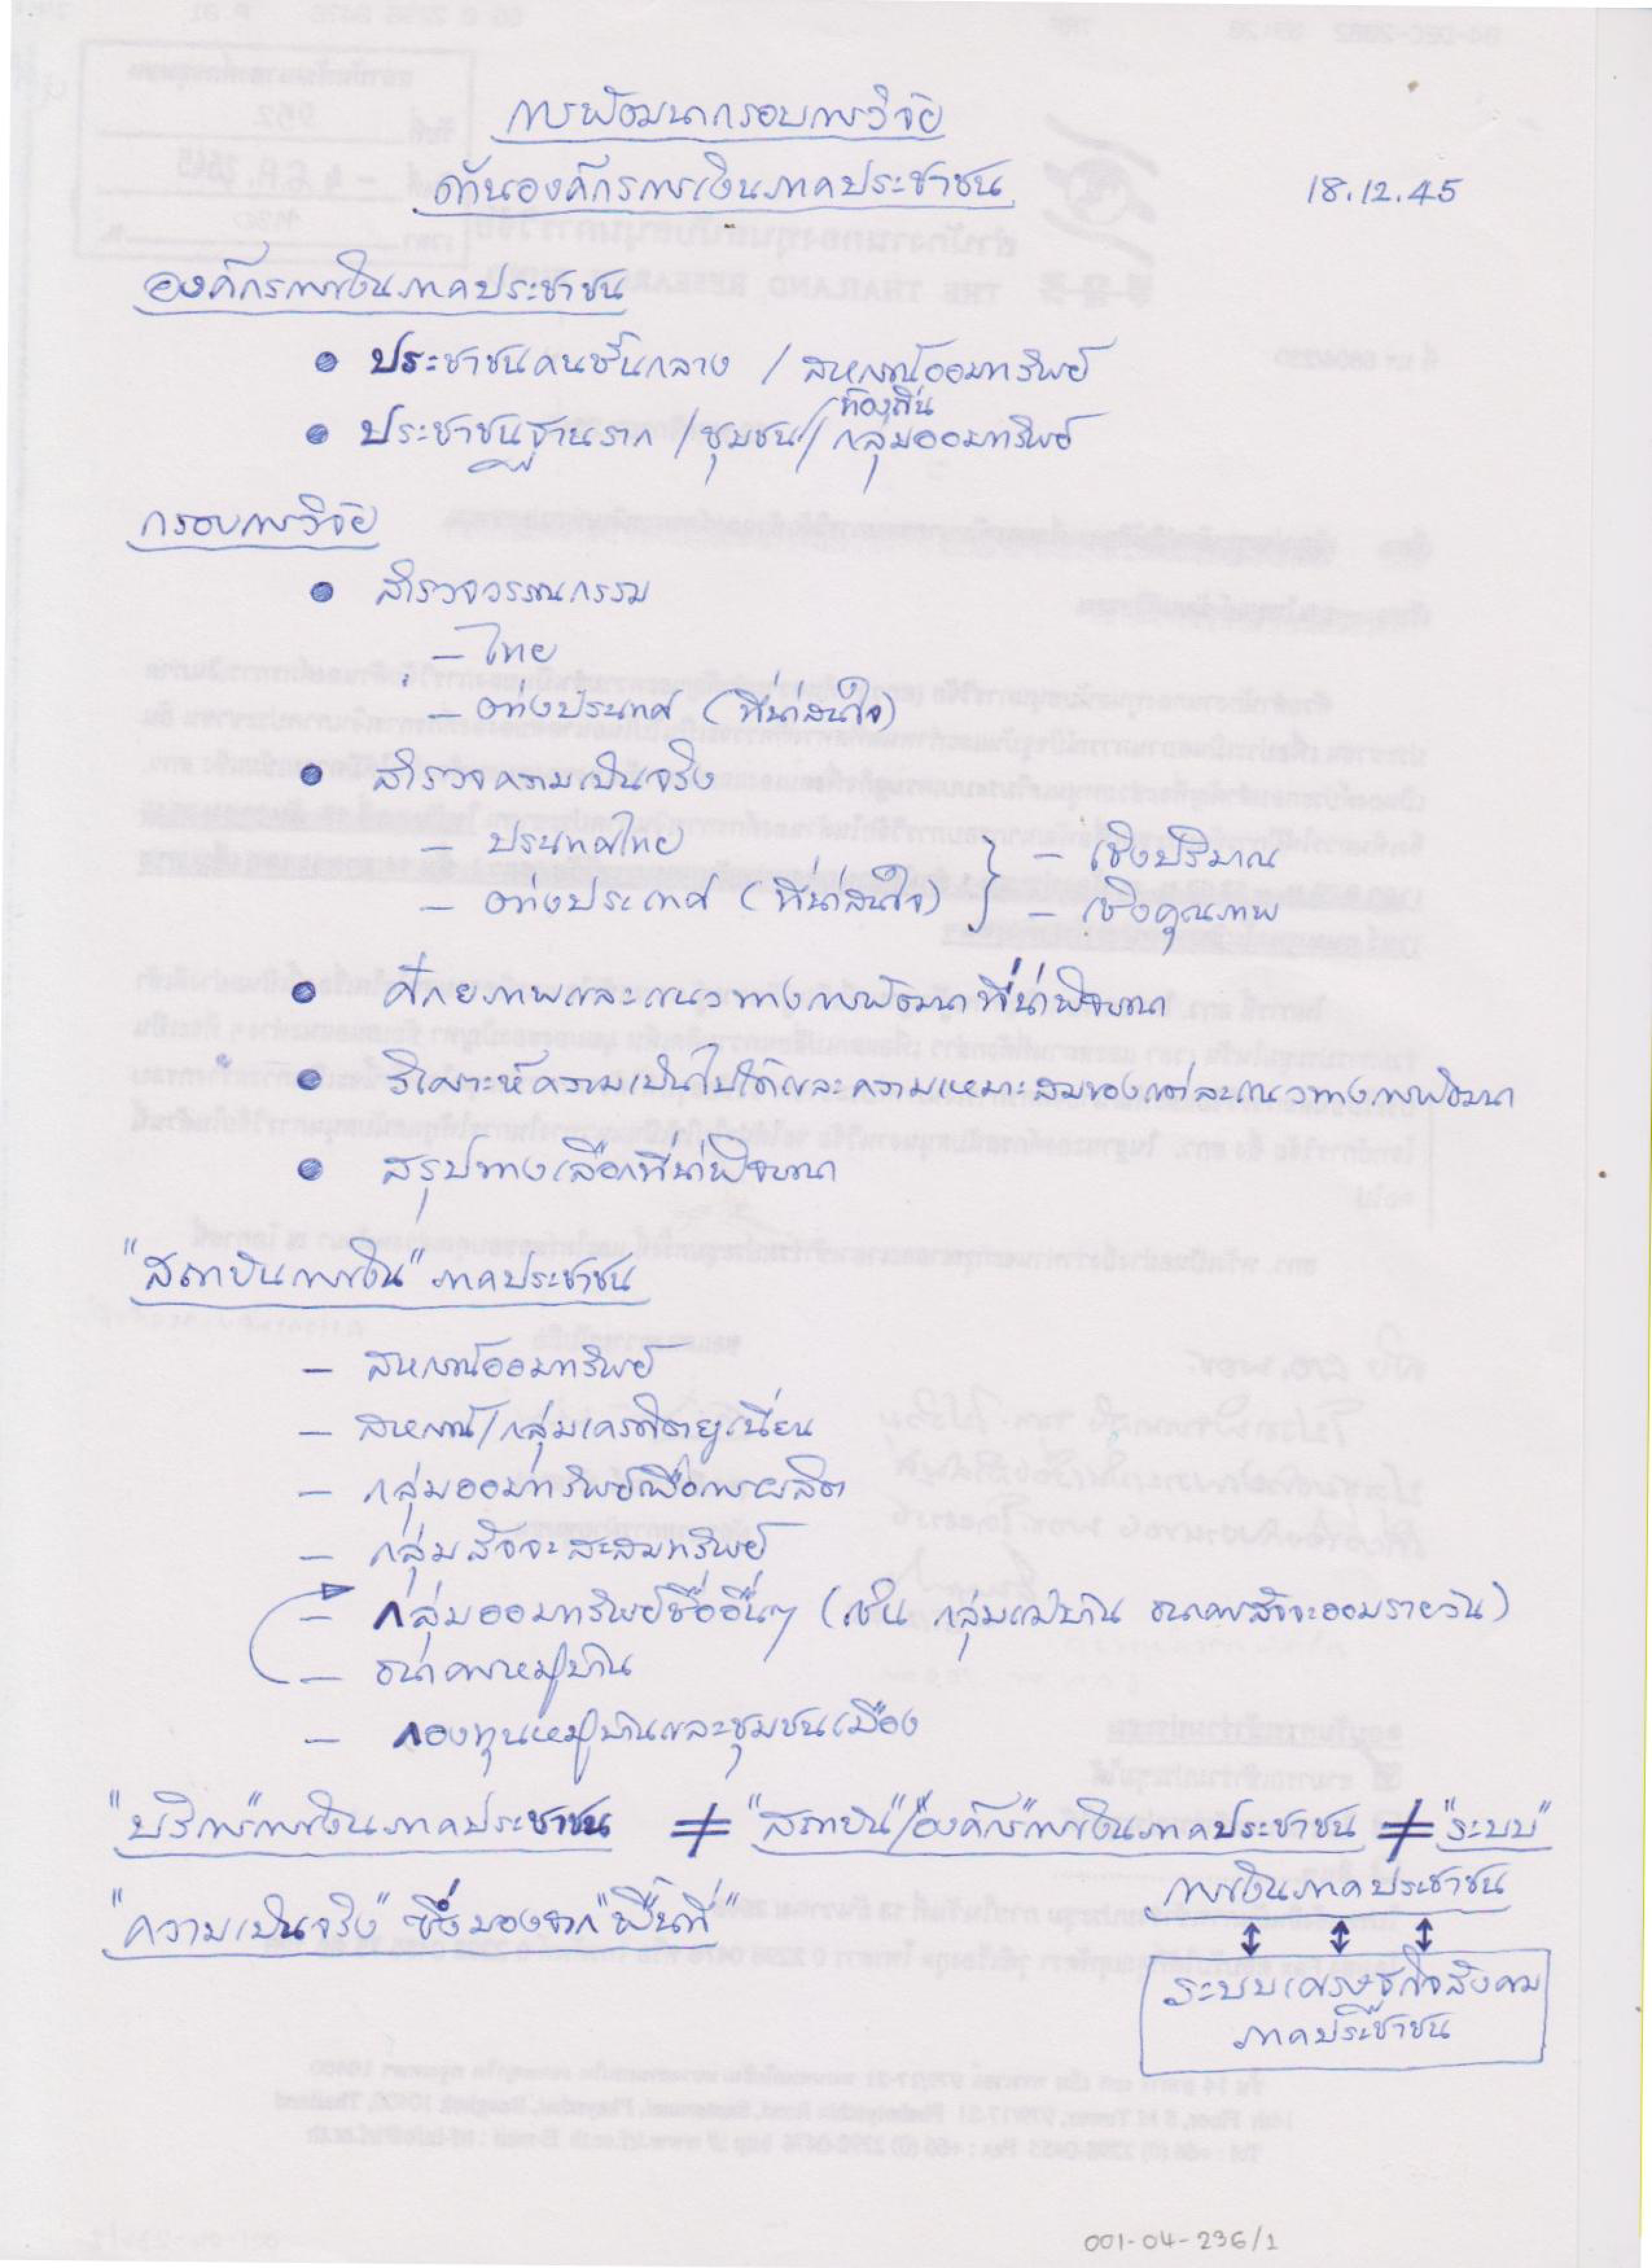 การพัฒนากรอบการวิจัย
ด้านองค์กรการเงินภาคประชาชน 18.12.45
องค์กรการเงินภาคประชาชน
• ประชาชนคนชั้นกลาง / สหกรณ์ออมทรัพย์
ท้องถิ่น
• ประชาชนฐานราก / ชุมชน / กลุ่มออมทรัพย์
กรอบการวิจัย
• สำรวจวรรณกรรม
– ไทย
– ต่างประเทศ (ที่น่าสนใจ)
• สำรวจความเป็นจริง
– ประเทศไทย – เชิงปริมาณ
– ต่างประเทศ (ที่น่าสนใจ) } – เชิงคุณภาพ
• ศักยภาพและแนวทางการพัฒนาที่น่าพิจารณา
• วิเคราะห์ความเป็นไปได้และความเหมาะสมของแต่ละแนวทางการพัฒนา
• สรุปทางเลือกที่น่าพิจารณา
"สถาบันการเงิน" ภาคประชาชน
– สหกรณ์ออมทรัพย์
– สหกรณ์/กลุ่มเครดิตยูเนี่ยน
– กลุ่มออมทรัพย์เพื่อการผลิต
– กลุ่มสัจจะสะสมทรัพย์
– กลุ่มออมทรัพย์ชื่ออื่นๆ (เช่น กลุ่มแม่บ้าน ธนาคารสัจจะออมรายวัน)
– ธนาคารหมู่บ้าน
– กองทุนหมู่บ้านและชุมชนเมือง
"บริการ"การเงินภาคประชาชน ≠ "สถาบัน"/"องค์กร"การเงินภาคประชาชน ≠ "ระบบ"
การเงินภาคประชาชน
"ความเป็นจริง" ซึ่งมองจาก "พื้นที่"
↕ ↕ ↕
ระบบเศรษฐกิจสังคม
ภาคประชาชน
001-04-236/1